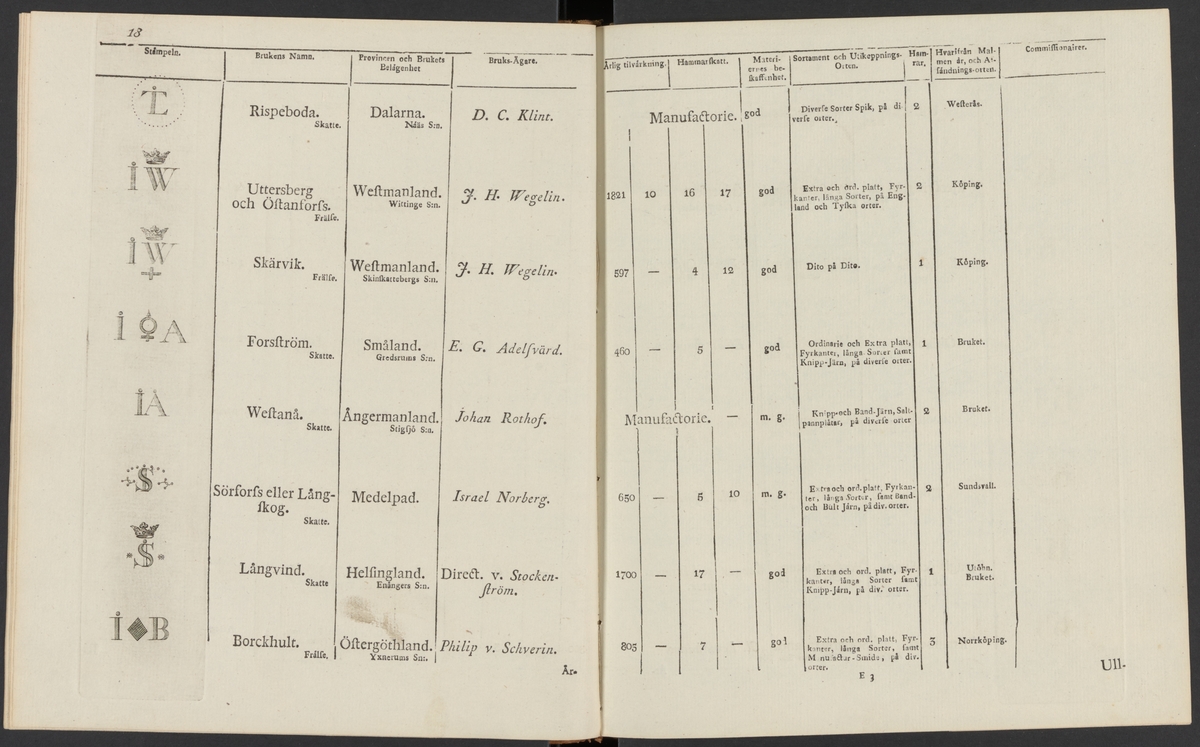 18
Stämpeln.
Brukens Namn.
Provincen och Brukets
Belägenhet
Bruks-Ägare.
Årlig tilvärkning.
Hammarskatt.
Materi-
ernes be-
skaffenhet.
Sortament och Utskeppnings-
Orten.
Ham-
rar.
Hvarifrån Mal-
men är, och Af-
sändnings-orten.
Commissionairer.
İL
Rispeboda.
Skatte.
Dalarna.
Näås S:n.
D. C. Klint.
Manufactorie.
god
Diverse Sorter Spik, på di
verse orter.
2
Westerås.
İW
Uttersberg
och Östanforss.
Frälse.
Westmanland.
Wittinge S:n.
J. H. Wegelin.
1821
10
16
17
god
Extra och ord. platt, Fyr-
kanter, långa Sorter, på Eng-
land och Tyska orter.
2
Köping.
İW
Skärvik.
Frälse.
Westmanland.
Skinskattebergs S:n.
J. H. Wegelin.
597
—
4
12
god
Dito på Dito.
1
Köping.
İ A
Forsström.
Skatte.
Småland.
Gredsrums S:n.
E. G. Adelsvärd.
460
—
5
—
god
Ordinarie och Extra platt,
Fyrkanter, långa Sorter samt
Knipp-Järn, på diverse orter.
1
Bruket.
İA
Westanå.
Skatte.
Ångermanland.
Stigsjö S:n.
Johan Rothof.
Manufactorie.
—
m. g.
Knipp-och Band-Järn, Salt-
pannplåtar, på diverse orter
2
Bruket.
S
Sörforss eller Lång-
skog.
Skatte.
Medelpad.
Israel Norberg.
650
—
5
10
m. g.
Extra och ord. platt, Fyrkan-
ter, långa Sorter, samt Band-
och Bult Järn, på div. orter.
2
Sundsvall.
S
Långvind.
Skatte
Helsingland.
Enångers S:n.
Direct. v. Stocken-
ström.
1700
—
17
—
god
Extra och ord. platt, Fyr-
kanter, långa Sorter samt
Knipp-Järn, på div. orter.
1
Utöbn.
Bruket.
İ◆B
Borckhult.
Frälse.
Östergöthland.
Yxnerums S:n.
Philip v. Schverin.
805
—
7
—
god
Extra och ord. platt, Fyr-
kanter, långa Sorter, samt
Manufactur-Smide, på div.
orter.
3
Norrköping.
År-
E 3
Ull-